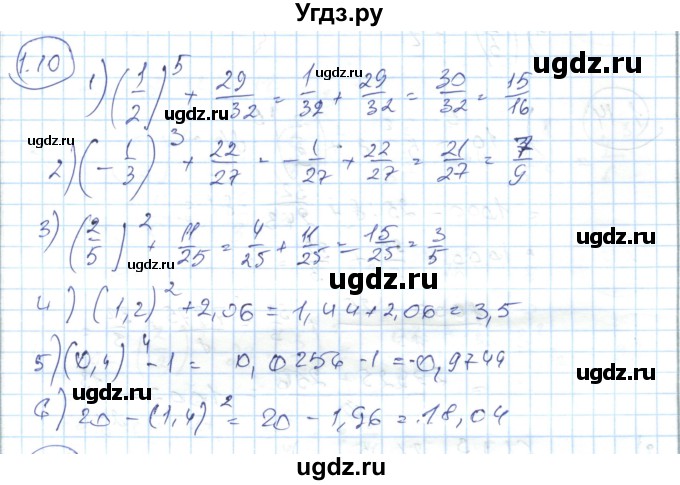 Угдз.ру
1.10
1) (1/2)^5 + 29/32 = 1/32 + 29/32 = 30/32 = 15/16
2) (-1/3)^3 + 22/27 = -1/27 + 22/27 = 21/27 = 7/9
3) (2/5)^2 + 11/25 = 4/25 + 11/25 = 15/25 = 3/5
4) (1,2)^2 + 2,06 = 1,44 + 2,06 = 3,5
5) (0,4)^4 - 1 = 0,0256 - 1 = -0,9744
6) 20 - (1,4)^2 = 20 - 1,96 = 18,04
ugdz.ru
ugdz.ru
ugdz.ru
ugdz.ru
ugdz.ru
ugdz.ru
ugdz.ru
ugdz.ru
ugdz.ru
ugdz.ru
ugdz.ru
ugdz.ru